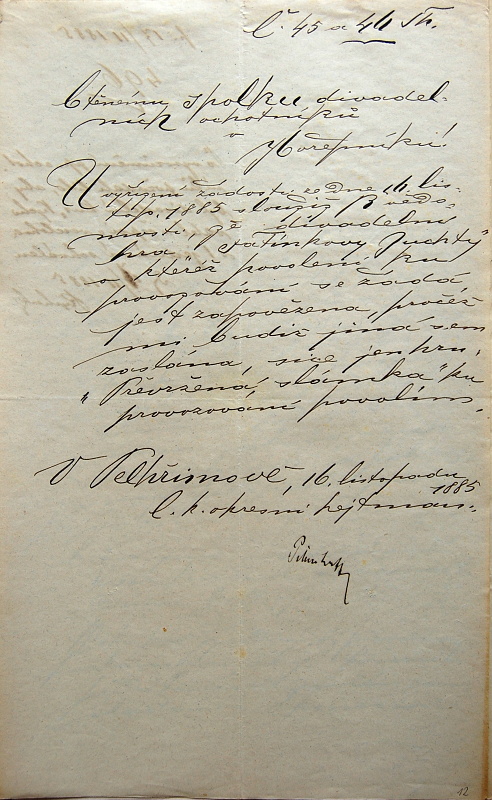 Č. 45 a 46 Th.
Ctěnému spolku divadel-
ních ochotníků
v
Hořepníku!
U vyřízení žádosti ze dne 14. lis-
top. 1885 sloužiž k vědo-
mosti, že divadelní
hra „Fatinkovy Juchty"
o kteréž povolení ku
provozování se žádá,
jest zapovězena, pročež
mi budiž jiná sem
zaslána, sice jen hru
„Převržená slámka" ku
provozování povolím.
V Pelhřimově, 16. listopadu
1885
C. k. okresní hejtman:
12